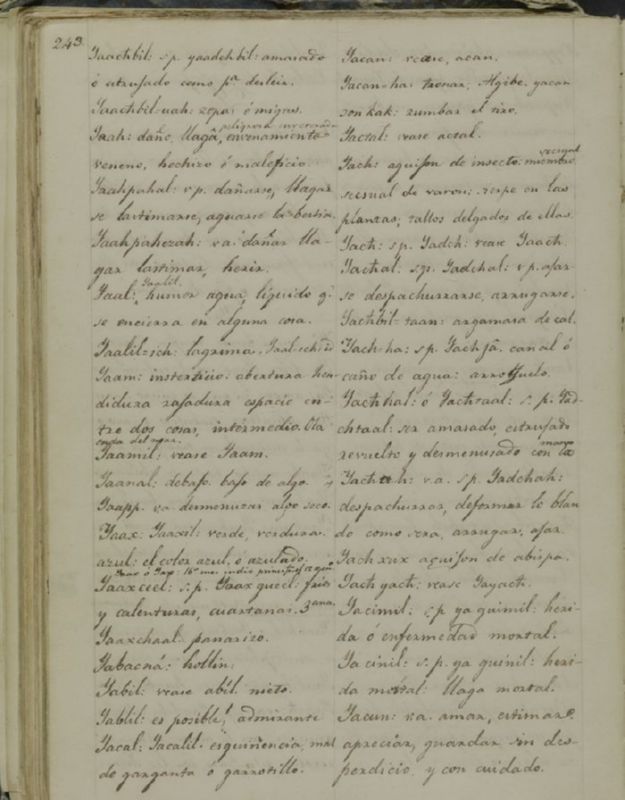 243
Yaachbil: s.p. yaadchbil: amasado
ó estrujado como pa. desleir.
Yaachbil-uah: sopas ó migas.
peligrosa
Yaah: daño, llaga, envenamiento
veneno, hechizo ó maleficio.
Yaahpahal: v.p. dañarse, llagar
se lastimarse, aguarse la bestia.
Yaahpahezah: va. dañar lla-
gar lastimar, herir.
Yaalil
Yaal: humor agua, liquido q.
se encierra en alguna cosa.
Yaalil-ich: lagrima.
Yaam: intersticio: abertura hen-
didura rajadura espacio en-
tre dos cosas, intermedio.
onda del agua.
Yaamil: vease Yaam.
Yaanal: debajo bajo de algo.
Yaapp. va. desmenuzar algo seco.
Yaax: Yaaxil: verde, verdura.
azul: el color azul, ó azulado.
Yaax ó Yax: 16o. mes indio
Yaaxceel: s.p. Yaax queel: frios
y calenturas, cuartanas.
Yaaxchaal panarizo.
Yabacná: hollin.
Yabil: vease abil. nieto.
Yablil: es posible! admirante
Yacal: Yacalil. esquiñencia, mal
de garganta ó garrotillo.
Yacan: vease, acan.
Yacan-ha: tronar, Algibe. yacan
son kak: zumbar el tiro.
Yactal: vease actal.
secsual
Yach: aguijon de insecto: miembro
secsual de varon: serpe en las
plantas, tallos delgados de ellas.
Yach: s.p. Yadch: vease Yaach.
Yachal: sp. Yadchal: v.p. ajar
se despachurrarse, arrugarse.
Yachbil-taan: argamasa de cal.
Yach-ha: s.p. Yach ja. canal ó
caño de agua: arroyuelo.
Yachhal: ó Yachtaal: s.p. Yad-
chtaal: ser amasado, estrujado
mano
revuelto y desmenusado con la
Yachah: v.a. s.p. Yadchah:
despachurrar, deformar lo blan
do como cera, arrugar, ajar.
Yach xux aguijon de abispa.
Yach yach; vease Yayach.
Yacimil: s.p ya quimil: heri-
da ó enfermedad mortal.
Ya cinil: s.p. ya quinil: heri-
da mortal: llaga mortal.
Yacun: v.a. amar, estimar
apreciar, guardar sin des-
perdicio, y con cuidado.